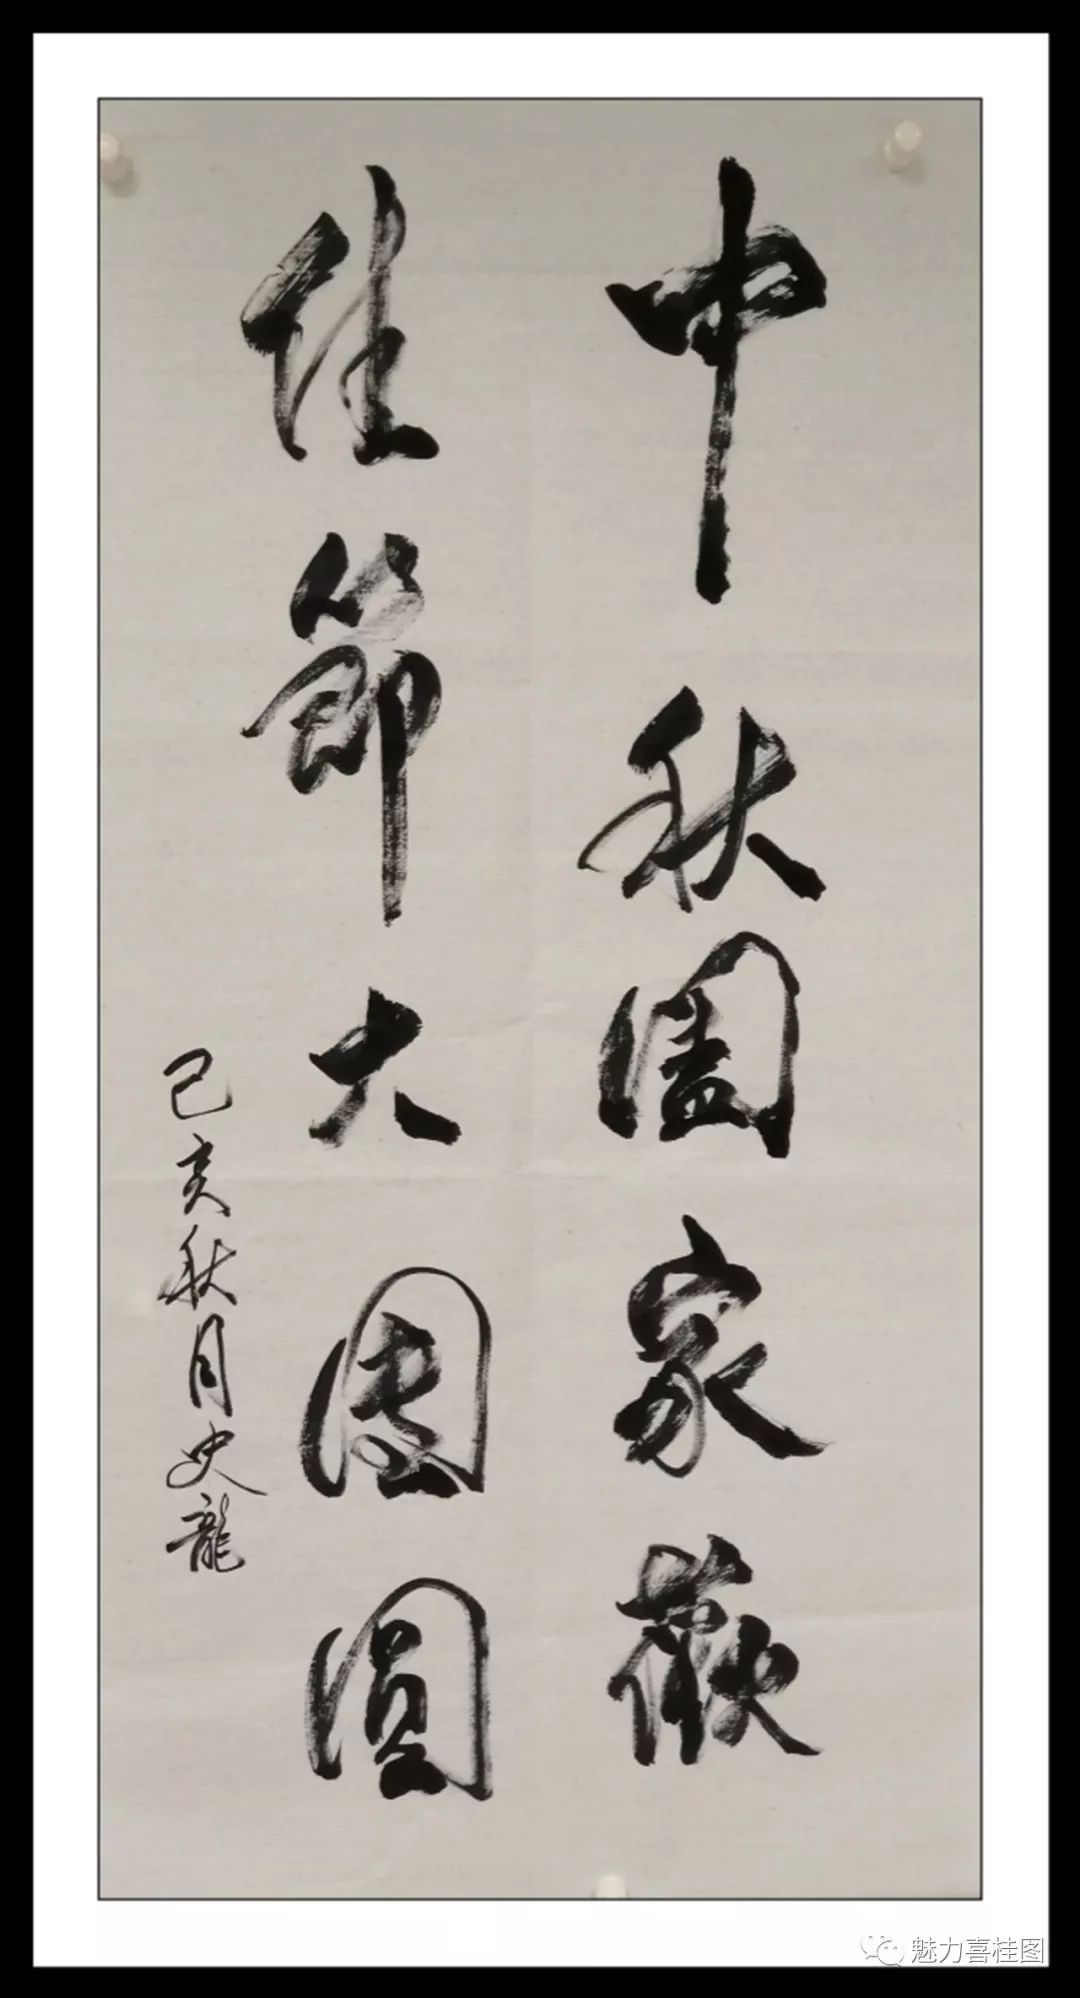 中秋阖家歡
佳節大團圓
己亥秋月史龍
魅力喜桂图